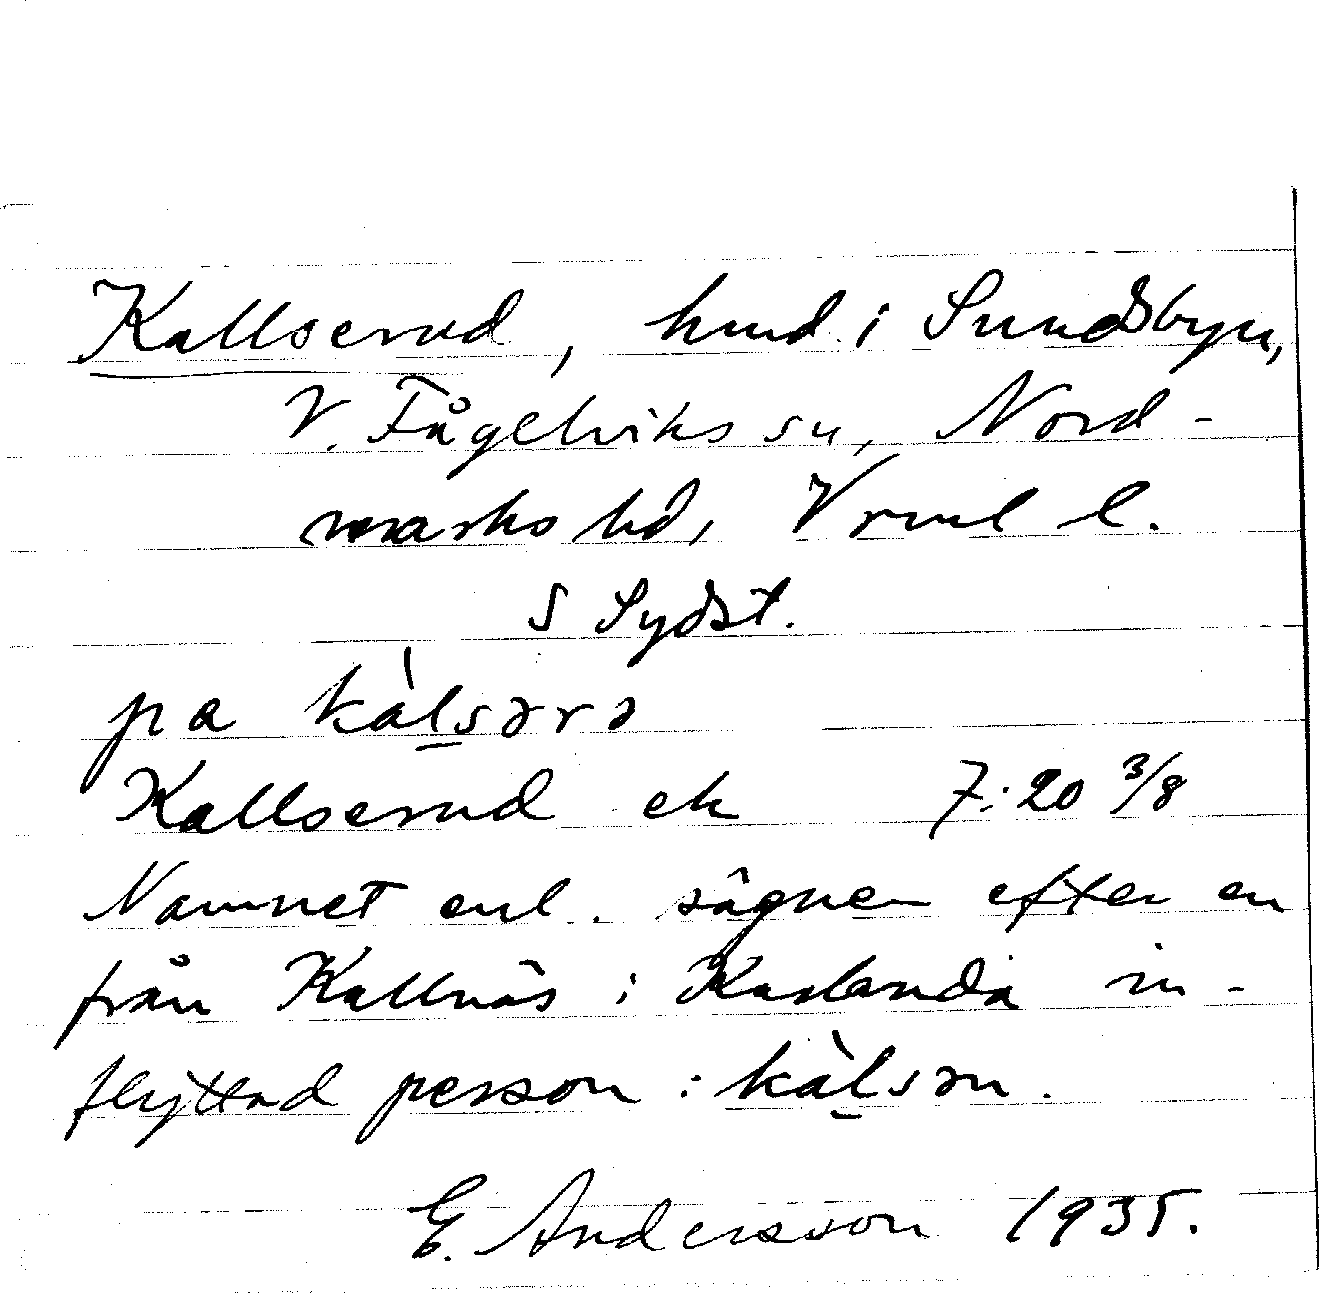 Kallserud, hmd i Sundsbyn,
V. Fågelviks sn, Nord-
marks hd, Vrml l.
S Sydst.
pa kàl̠sərə
Kallserud ek 7:20 3/8
Namnet enl. sägnen efter en
från Kallnäs i Karlanda in-
flyttad person: kàl̠sən.
E. Andersson 1935.